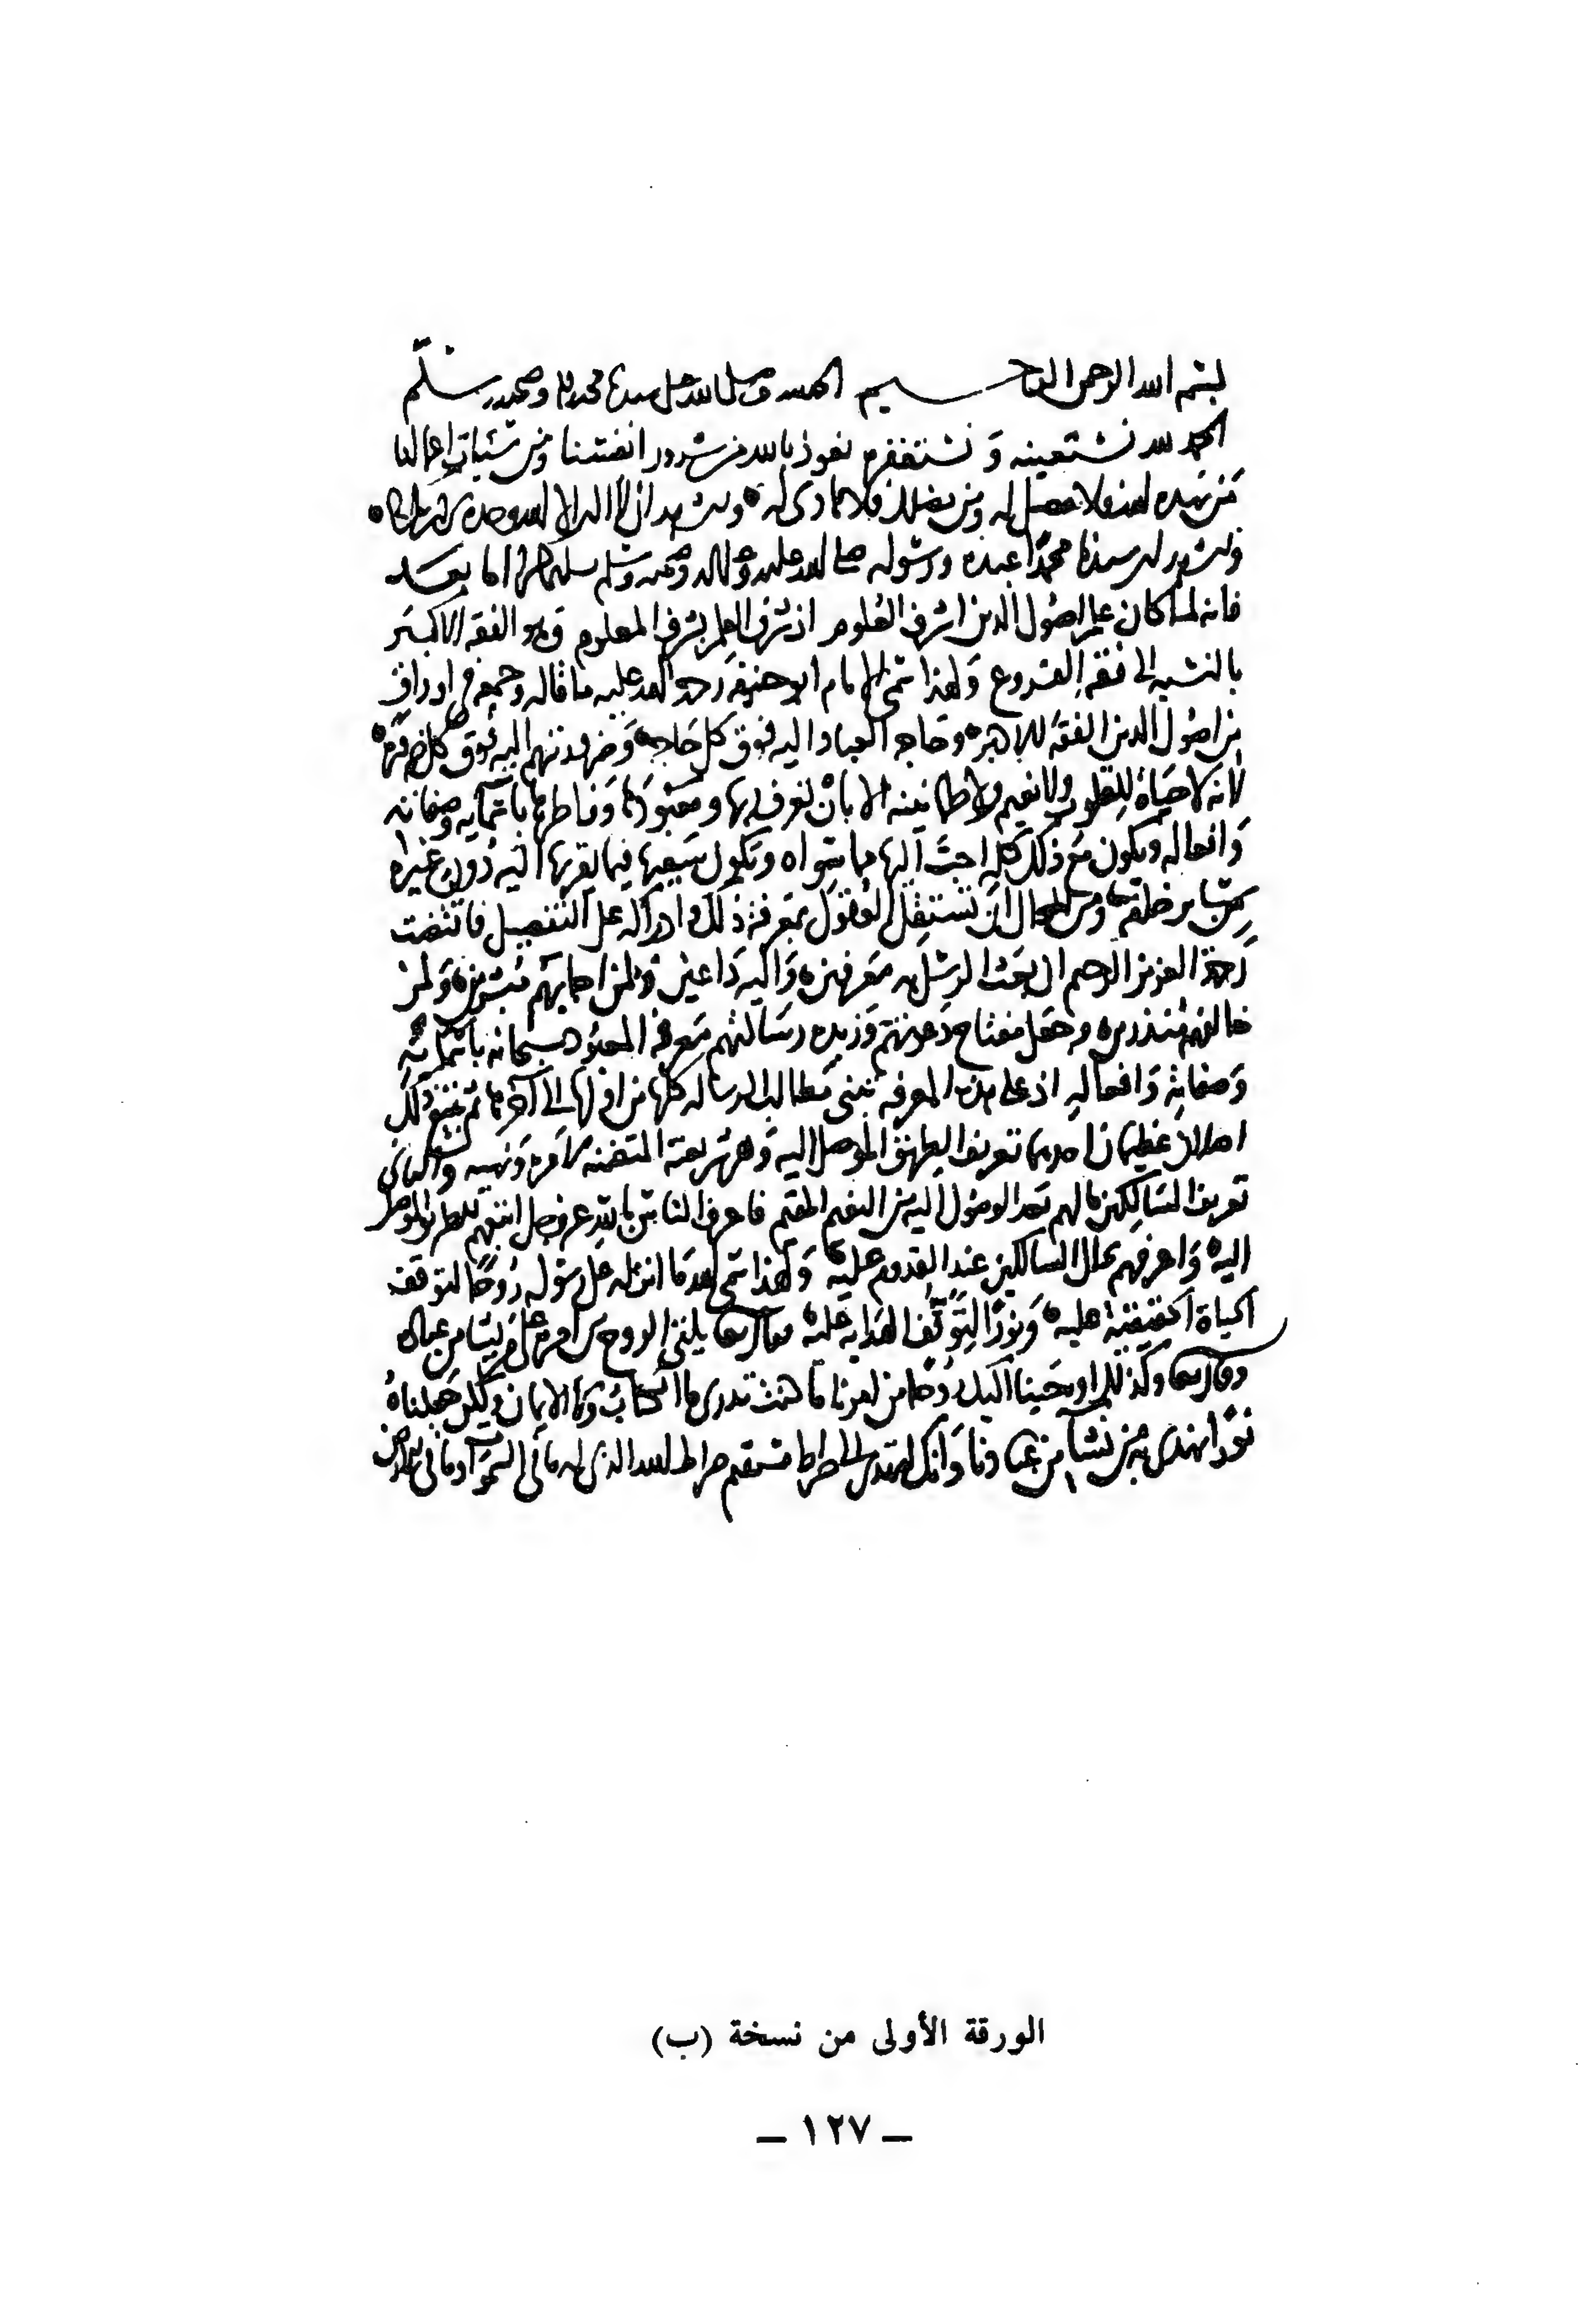 بسم الله الرحمن الرحيم الحمد لله وصلى الله على سيدنا محمد وآله وصحبه وسلم
الحمد لله نستعينه ونستغفره نعوذ بالله من شرور انفسنا ومن سيئات اعمالنا
من يهده الله فلا مضل له ومن يضلل فلا هادى له ونشهد ان لا اله الا الله وحده لا شريك له
ونشهد ان سيدنا محمدا عبده ورسوله صلى الله عليه وعلى اله وصحبه وسلم تسليما كثيرا اما بعد
فانه لما كان علم اصول الدين اشرف العلوم اذ شرف العلم بشرف المعلوم وهو الفقه الاكبر
بالنسبه الى فقه الفروع ولهذا سمى الامام ابو حنيفه رحمه الله عليه ما قاله وجمعه فى اوراق
من اصول الدين الفقه الاكبر وحاجه العباد اليه فوق كل حاجه وضرورتهم اليه فوق كل ضروره
لانه لا حياة للقلوب ولا نعيم ولا طمانينه الا بان تعرف ربها ومعبودها وفاطرها باسمايه وصفاته
وافعاله ويكون مع ذلك كله احب اليها مما سواه ويكون سعيها فيما يقربها اليه دون غيره
من سائر خلقه ومن المحال ان تستقل العقول بمعرفة ذلك وادراكه على التفصيل فاقتضت
رحمة العزيز الرحيم ان بعث الرسل به معرفين واليه داعين ولمن اجابهم مبشرين ولمن
خالفهم منذرين وجعل مفتاح دعوتهم وزبده رسالتهم معرفة المعبود سبحانه باسمائه
وصفاته وافعاله اذ على هذه المعرفه تبنى مطالب الرساله كلها من اولها الى آخرها ثم يتبع ذلك
اصلان عظيمان احدهما تعريف الطريق الموصل اليه وهى شريعته المتضمنه لامره ونهيه والثانى
تعريف السالكين ما لهم بعد الوصول اليه من النعيم المقيم فاعرف الناس بالله عز وجل اتبعهم للطريق الموصل
اليه واعرفهم بحال السالكين عند القدوم عليه ولهذا سمى الله ما انزله على رسوله روحا لتوقف
الحياة الحقيقية عليه ونورا لتوقف الهدايه عليه فقال تعالى يلقى الروح من امره على من يشا من عباده
وقال تعالى وكذلك اوحينا اليك روحا من امرنا ما كنت تدرى ما الكتاب ولا الايمان ولكن جعلناه
نورا نهدى به من نشآ من عبادنا وانك لتهدى الى صراط مستقيم صراط الله الذى له ما فى السموات وما فى الارض
الورقة الأولى من نسخة (ب)
– ١٢٧ –